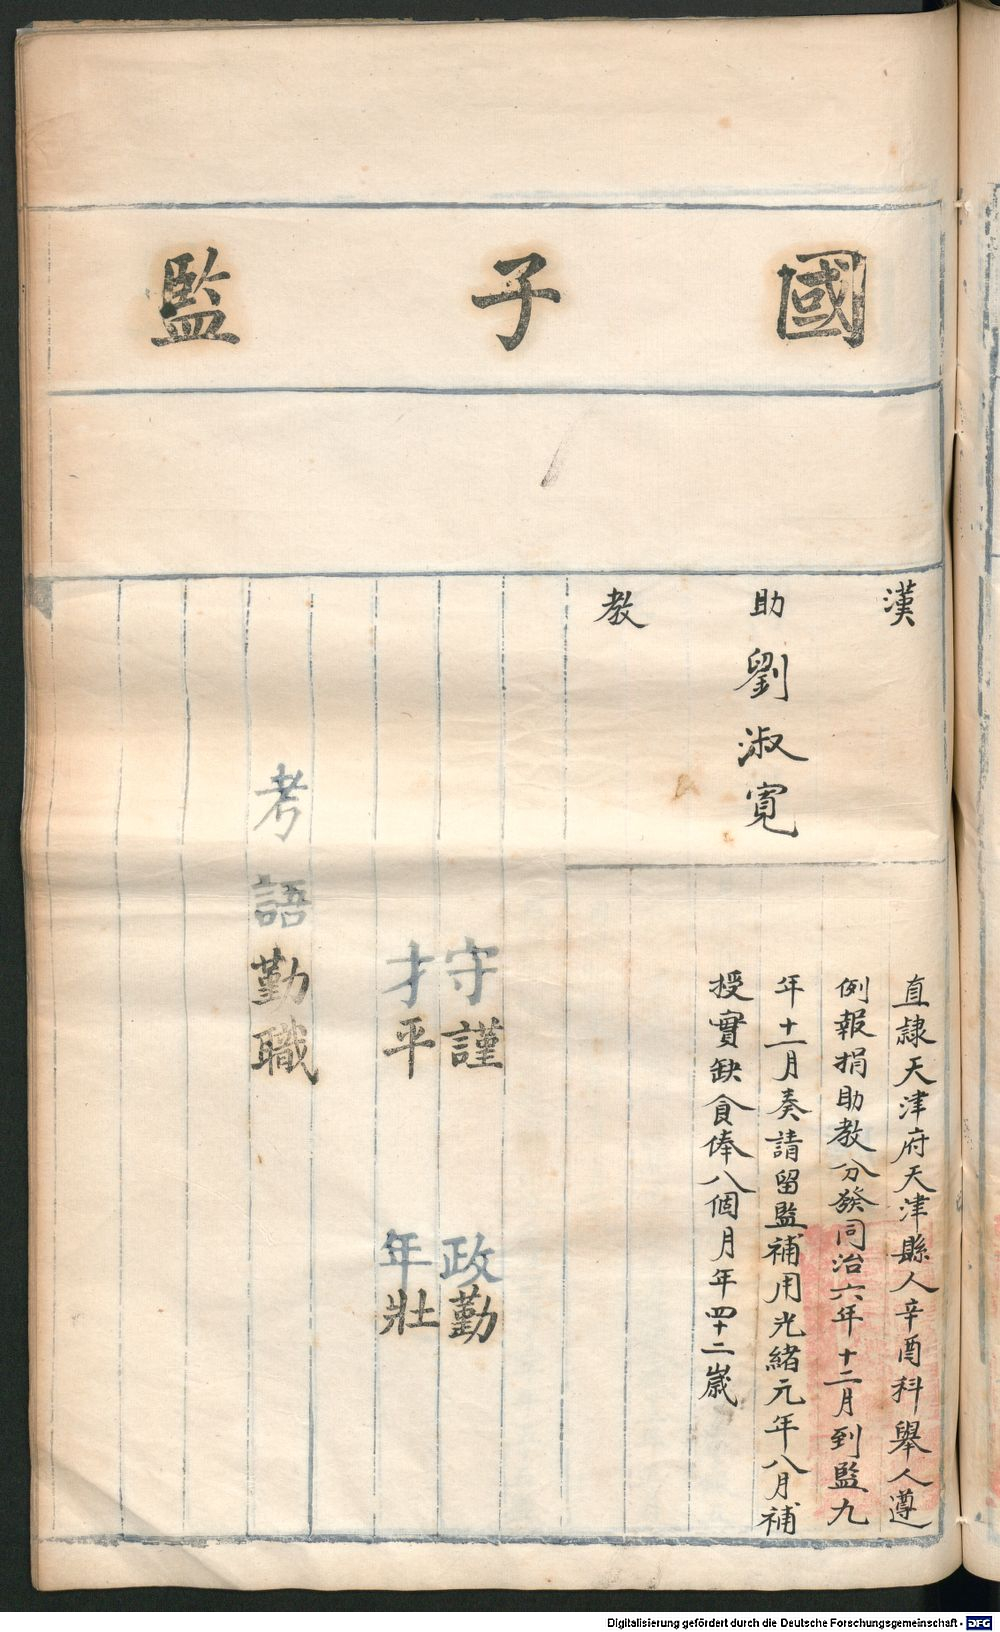 國子監
漢助教
劉淑寬
直隸天津府天津縣人辛酉科舉人遵
例報捐助教分發同治六年十二月到監九
年十一月奏請留監補用光緒元年八月補
授實缺食俸八個月年四十二歲
守謹 政勤
才平 年壯
考語勤職
Digitalisierung gefördert durch die Deutsche Forschungsgemeinschaft - DFG